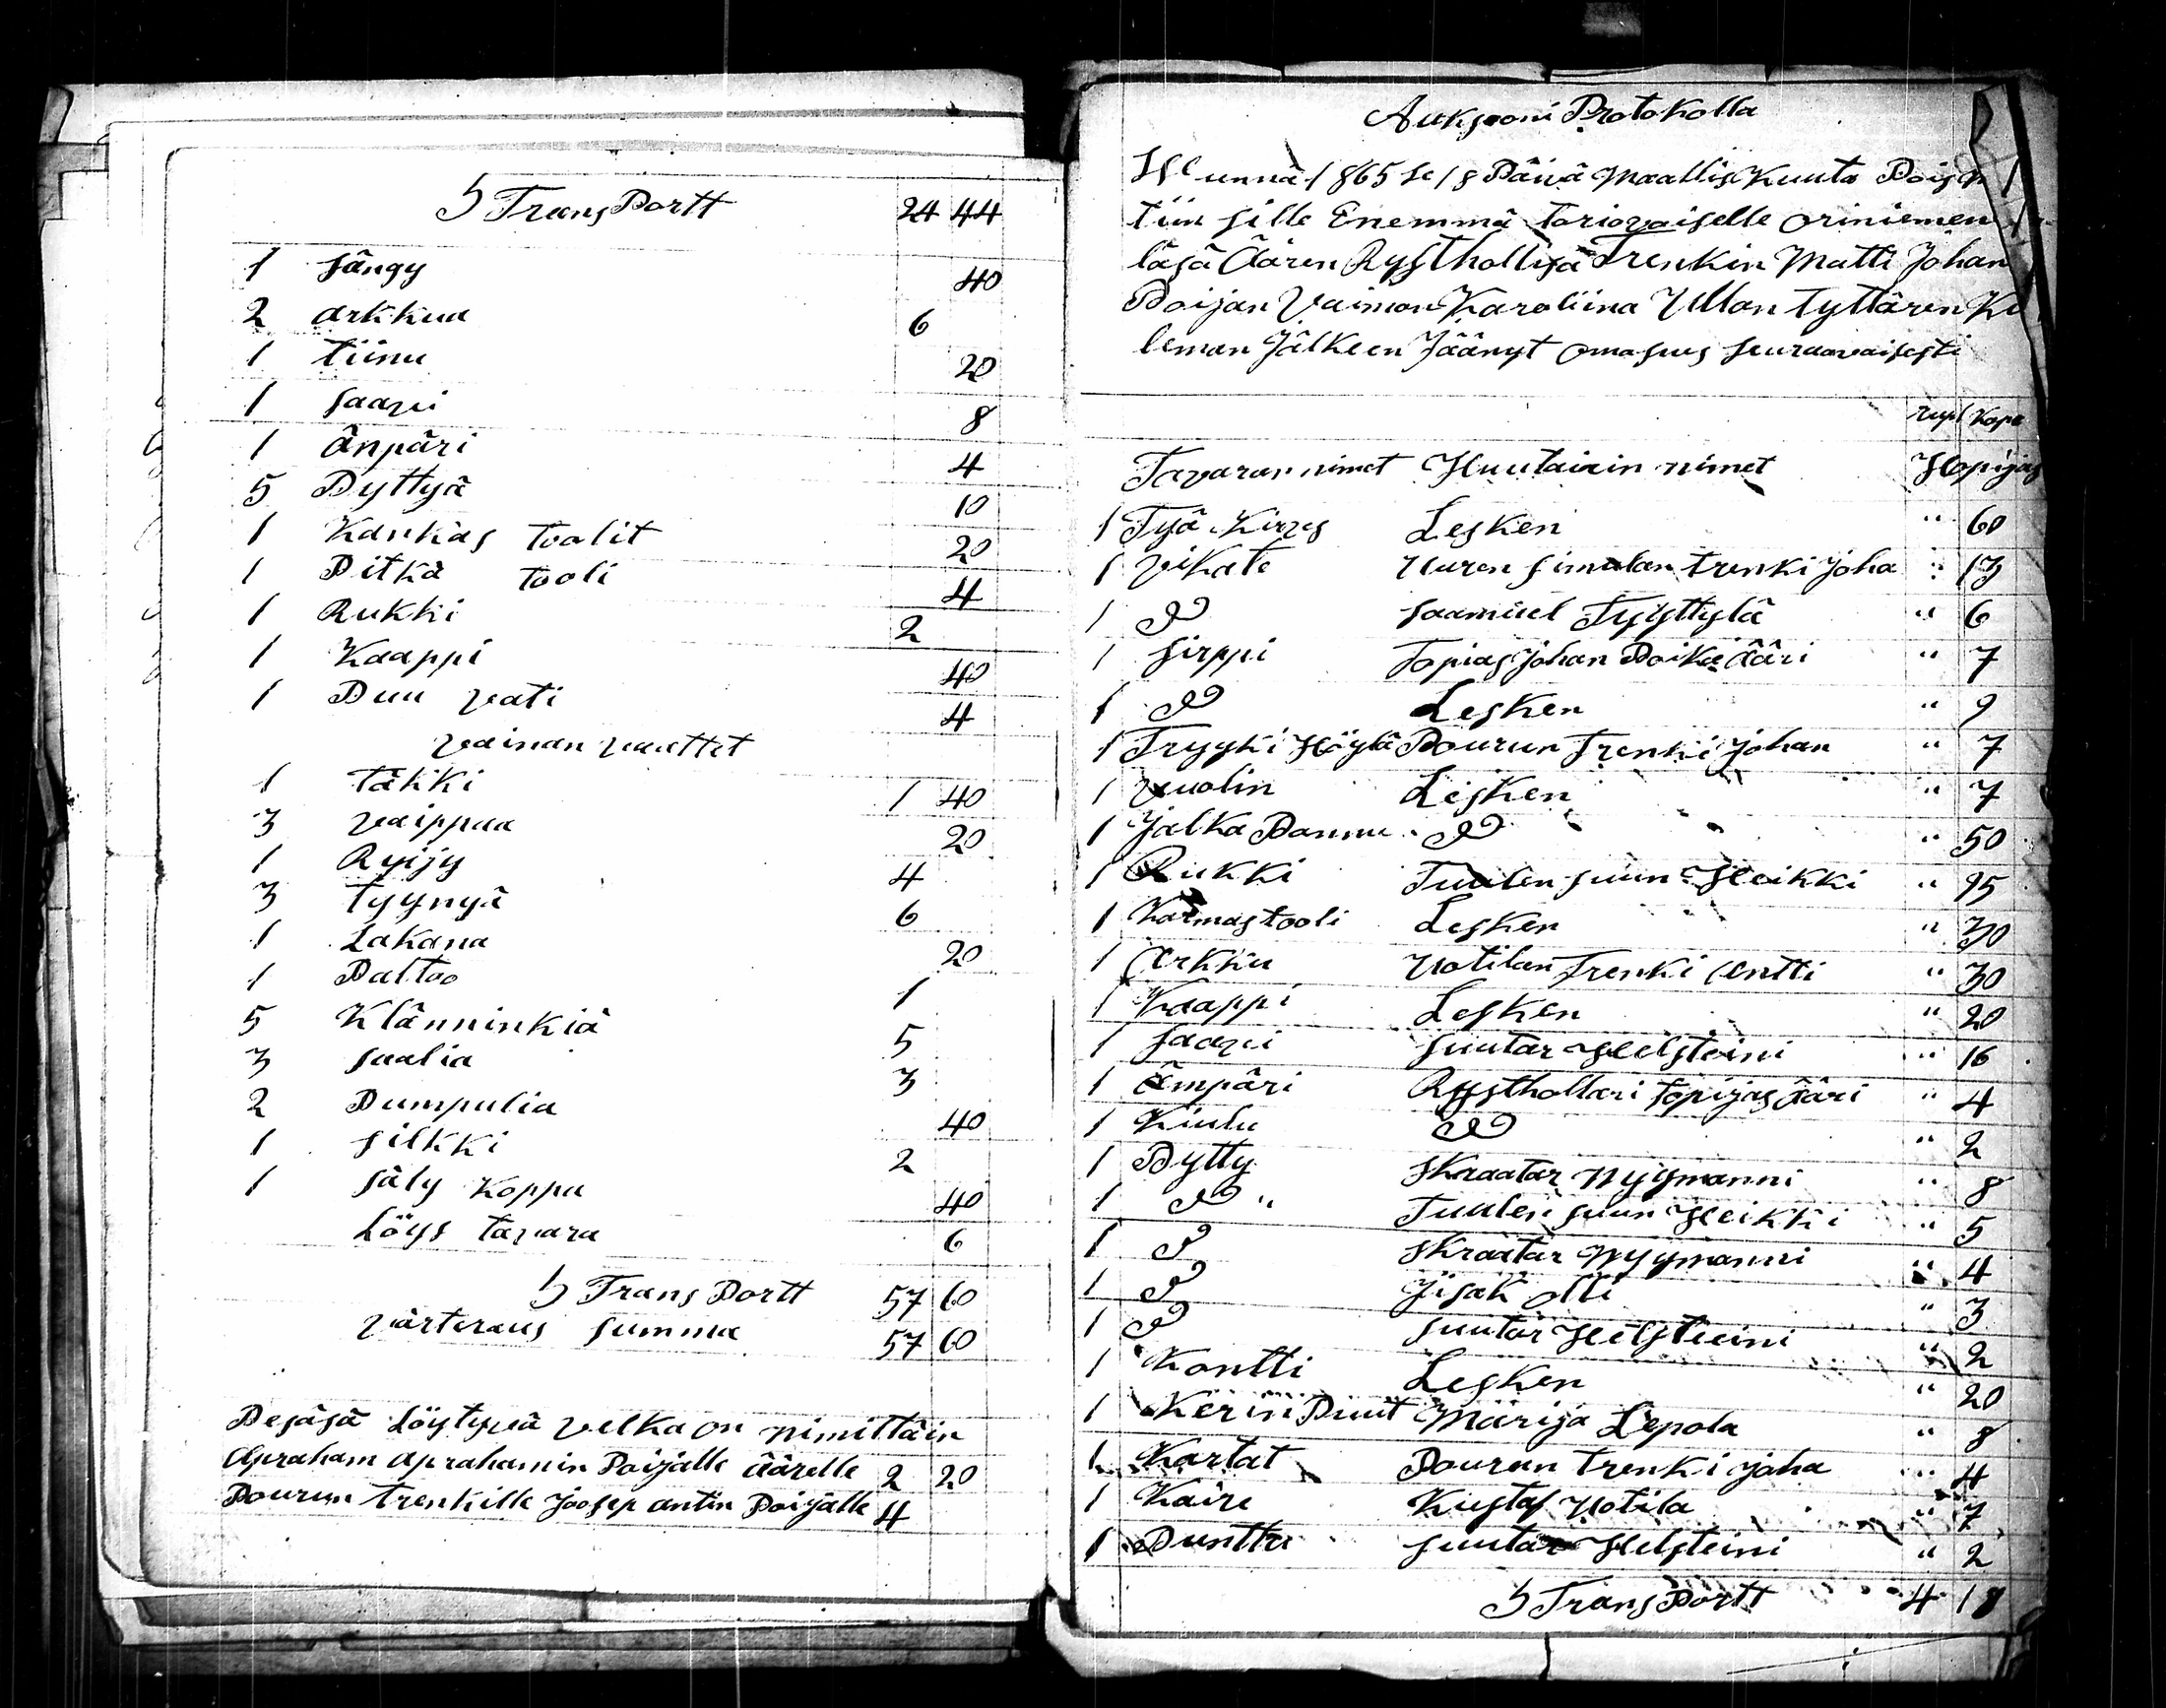 5 TransPortt 24 44
1 sängy 40
2 arkkua 6
1 tiinu 20
1 saavi 8
1 änpäri 4
5 Pyttyä 10
1 Kankas toolit 20
1 Pitkä tooli 4
1 Rukki 2
1 Kaappi 40
1 Puu vati 4
vainan vaattet
1 täkki 1 40
3 vaippaa 20
1 Ryijy 4
3 tyynyä 6
1 Lakana 20
1 Paltoo 1
5 Klänninkiä 5
3 saalia 3
2 Pumpulia 40
1 silkki 2
1 säly Koppa 40
Löys tavara 6
5 Trans Portt 57 60
värteraus summa 57 60
Pesäsä Löytyvä velka on nimittäin
Apraham aprahamin Poijalle äärelle 2 20
Pourun trenkille Joosep antin Poijalle 4
Auksooni Protokolla
Wunnä 1865 se 18 Päivä Maallis Kuuta
tiin sille Enemmä tariovaiselle oriniemen
läsä Äären Rysthollisä Trenkin Matti Johan
Poijan Vaimon Karoliina Ullan tyttären
leman Jälkeen Jäänyt omasus seuraavaisesti
rupl Kope
Tavaran nimet Huutaiin nimet Hopijas
1 Työ Kirves Lesken " 60
1 vikate Uuren simalan trenki Joha " 13
1 D Saamuel Tyystylä " 6
1 sirppi Topias Johan Poika ääri " 7
1 D Lesken " 9
1 Tryyki Höylä Pourun Trenki Johan " 7
1 Vuolin Lesken " 7
1 Jalka Pannu D " 50
1 Rukki Tuulen suun Heikki " 95
1 Karmastooli Lesken " 30
1 arkku Uotilan Trenki antti " 30
1 Kaappi Lesken " 20
1 saavi suutar Helsteini " 16
1 ämpäri Rysthollari topijas ääri " 4
1 Kiulu D " 2
1 Pytty skraatar Nyymanni " 8
1 D " Tuulen suun Heikki " 5
1 D skraatar Nyymanni " 4
1 D Jisak olli " 3
1 D suutar Helsteini " 2
1 Kontti Lesken " 20
1 Kerin Puut Maarija Lepola " 8
1 Kartat Pourun trenki Joha " 4
1 Kaire Kustaf Uotila " 7
1 Punttu suutar Helsteini " 2
5 TransPortt 4 18